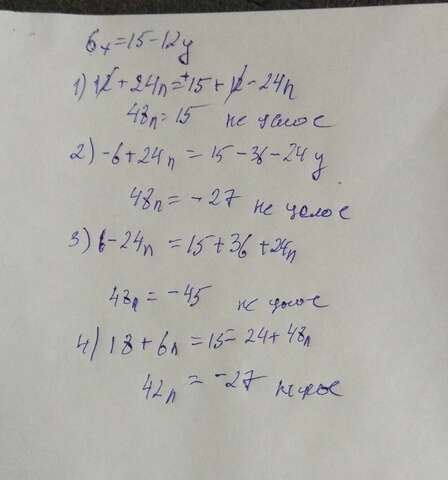 6x=15-12y
1) 12+24n=15+12-24n
48n=15 не целое
2) -6+24n=15-36-24y
48n=-27 не целое
3) 6-24n=15+36+24n
48n=-45 не целое
4) 18+6n=15-24+48n
42n=-27 не целое